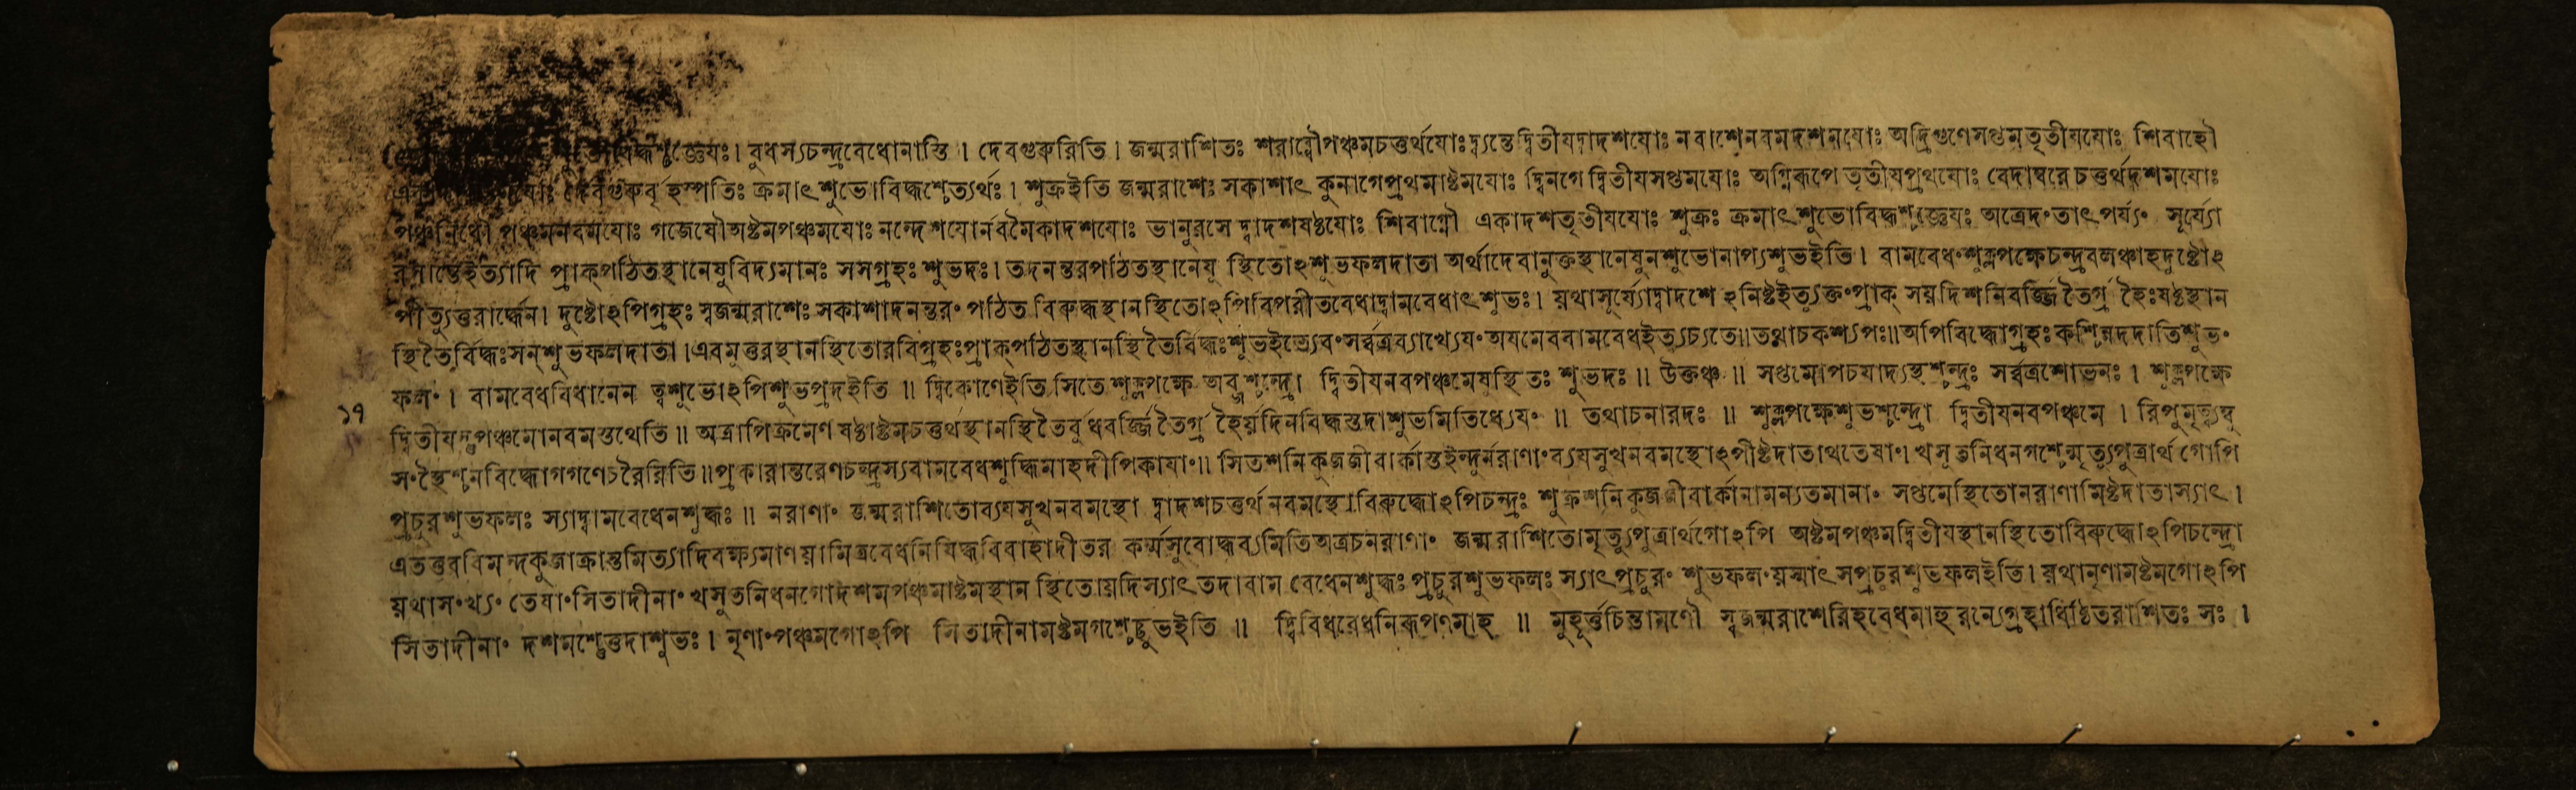 বিদ্ধশ্চজ্ঞেযঃ। বুধস্যচন্দ্রবেধোনাস্তি । দেবগুরুরিতি । জন্মরাশিতঃ শরাব্ধৌপঞ্চমচত্তুর্থযোঃদ্ব্যন্তেদ্বিতীযদ্বাদশযোঃ নবাশেনবমদশমযোঃ অদ্রিগুণেসপ্তমতৃতীযযোঃ শিবাহৌ
দেবগুরুবৃহস্পতিঃ ক্রমাৎশুভোবিদ্ধশ্চেত্যর্থঃ। শুক্রইতি জন্মরাশেঃ সকাশাৎ কুনাগেপ্রথমাষ্টমযোঃ দ্বিনগে দ্বিতীযসপ্তমযোঃ অগ্নিরূপে তৃতীযপ্রথযোঃ বেদাম্বরেচত্তুর্থদশমযোঃ
পঞ্চনিধৌ পঞ্চমনবমযোঃ গজেষৌঅষ্টমপঞ্চমযোঃ নন্দেশযোর্নবমৈকাদশযোঃ ভানুরসে দ্বাদশষষ্ঠযোঃ শিবাগ্নৌ একাদশতৃতীযযোঃ শুক্রঃ ক্রমাৎশুভোবিদ্ধশ্চজ্ঞেযঃ অত্রেদংতাৎপর্য্যং সূর্য্যো
রসান্ত্যেইত্যাদি প্রাক্‌পঠিতস্থানেষুবিদ্যমানঃ সসগ্রহঃ শুভদঃ। তদনন্তরপঠিতস্থানেষু স্থিতোঽশুভফলদাতা অর্থাদেবানুক্তস্থানেষুনশুভোনাপ্যশুভইতি। বামবেধংশুক্লপক্ষেচন্দ্রবলঞ্চাহদুষ্টোঽ
পীত্যুত্তরার্দ্ধেন। দুষ্টোঽপিগ্রহঃ স্বজন্মরাশেঃ সকাশাদনন্তরং পঠিত বিরুদ্ধস্থানস্থিতোঽপিবিপরীতবেধাদ্বামবেধাৎশুভঃ। য়থাসূর্য্যোদ্বাদশে ঽনিষ্টইত্যুক্তংপ্রাক্ সয়দিশনিবর্জ্জিতৈর্গ্রহৈঃষষ্ঠস্থান
স্থিতৈর্বিদ্ধঃসন্‌শুভফলদাতা।এবমুত্তরস্থানস্থিতোরবিগ্রহঃপ্রাক্‌পঠিতস্থানস্থিতৈর্বিদ্ধঃশুভইত্যেবংসর্ব্বত্রব্যাখ্যেযংঅযমেববামবেধইত্যুচ্যতে॥তথাচকশ্যপঃ॥অপিবিদ্ধোগ্রহঃকশ্চিন্নদদাতিশুভং
ফলং। বামবেধবিধানেন ত্বশুভোঽপিশুভপ্রদইতি ॥ দ্বিকোণেইতি সিতে শুক্লপক্ষে দ্বিতীযনবপঞ্চমেষুস্থিতঃ শুভদঃ॥ উক্তঞ্চ ॥ সপ্তমোপচযাদ্যস্থশ্চন্দ্রঃ সর্ব্বত্রশোভনঃ । শুক্লপক্ষে
দ্বিতীযস্তুপঞ্চমোনবমস্তথেতি॥ অত্রাপিক্রমেণ ষষ্ঠাষ্টমচত্তুর্থস্থানস্থিতৈর্বুধবর্জ্জিতৈর্গ্রহৈর্য়দিনবিদ্ধস্তদাশুভমিতিধ্যেযং ॥ তথাচনারদঃ ॥ শুক্লপক্ষেশুভশ্চন্দ্রো দ্বিতীযনবপঞ্চমে । রিপুমৃত্যম্বু
সংস্থৈশ্চনবিদ্ধোগগণেচরৈরিতি॥প্রকারান্তরেণচন্দ্রস্যবামবেধশুদ্ধিমাহদীপিকাযাং॥ সিতশনিকুজজীবার্কাস্তইন্দুর্নরাণাংব্যযসুখনবমস্থোঽপীষ্টদাতাথতেষাং। খসুতনিধনগশ্চেন্মৃত্যুপুত্রার্থগোপি
প্রচুরশুভফলঃ স্যাদ্বামবেধেনশুদ্ধঃ ॥ নরাণাং জন্মরাশিতোব্যযসুখনবমস্থো দ্বাদশচত্তুর্থনবমস্থোবিরুদ্ধোঽপিচন্দ্রঃ শুক্রশনিকুজজীবার্কানামন্যতমানাং সপ্তমেস্থিতোনরাণামিষ্টদাতাস্যাৎ।
এতত্তুরবিমন্দকুজাক্রান্তমিত্যাদিবক্ষ্যমাণয়ামিত্রবেধনিষিদ্ধবিবাহাদীতর কর্ম্মসুবোদ্ধব্যমিতিঅত্রচনরাণাং জন্মরাশিতোমৃত্যুপুত্রার্থগোঽপি অষ্টমপঞ্চমদ্বিতীযস্থানস্থিতোবিরুদ্ধোঽপিচন্দ্রো
য়থাসংখ্যং তেষাংসিতাদীনাং খসুতনিধনগোদশমপঞ্চমাষ্টমস্থান স্থিতোয়দিস্যাৎতদাবাম বেধেনশুদ্ধঃ প্রচুরশুভফলঃ স্যাৎপ্রচুরং শুভফলংয়স্মাৎসপ্রচুরশুভফলইতি। য়থানৃণামষ্টমগোঽপি
সিতাদীনাং দশমশ্চেত্তদাশুভঃ। নৃণাংপঞ্চমগোঽপি সিতাদীনামষ্টমগশ্চেচ্ছুভইতি ॥ দ্বিবিধবেধনিরূপণমাহ ॥ মুহূর্ত্তচিন্তামণৌ স্বজন্মরাশেরিহবেধমাহু রন্যেগ্রহাধিষ্ঠিতরাশিতঃ সঃ ।
১৭